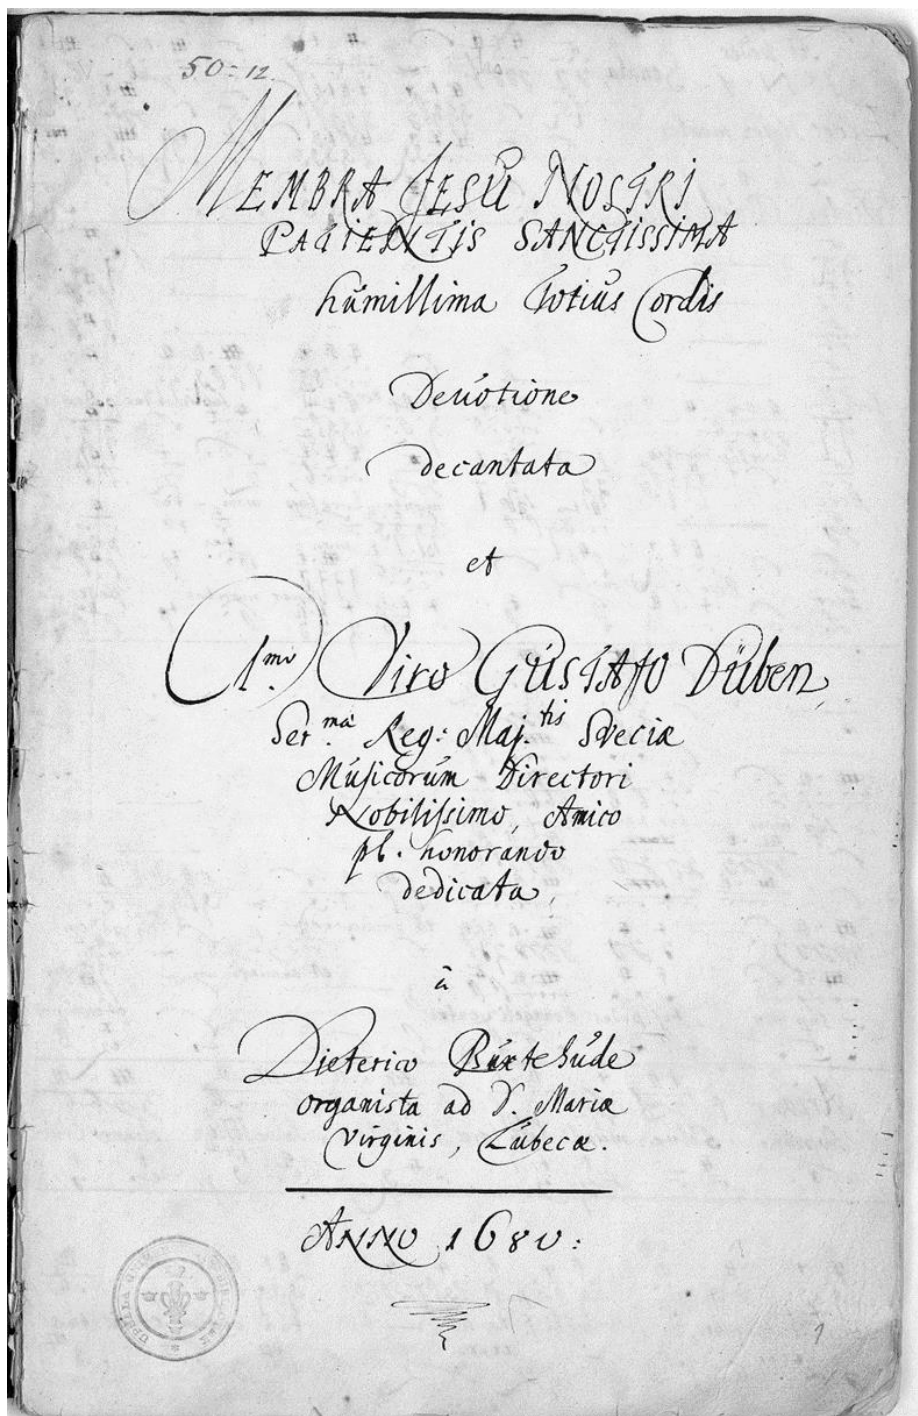 50=12.
MEMBRA JESU NOSTRI
PATIENTIS SANCTISSIMA
humillima Totius Cordis
Devotione
decantata
et
Cl.mo Viro GUSTAVO Düben,
Ser.ma Reg: Maj.tis Sveciæ
Musicorum Directori
Nobilissimo, Amico
pl. honorando
dedicata,
â
Dieterico Buxtehude
organista ad S. Mariæ
virginis, Lübecæ.
ANNO 1680:
1